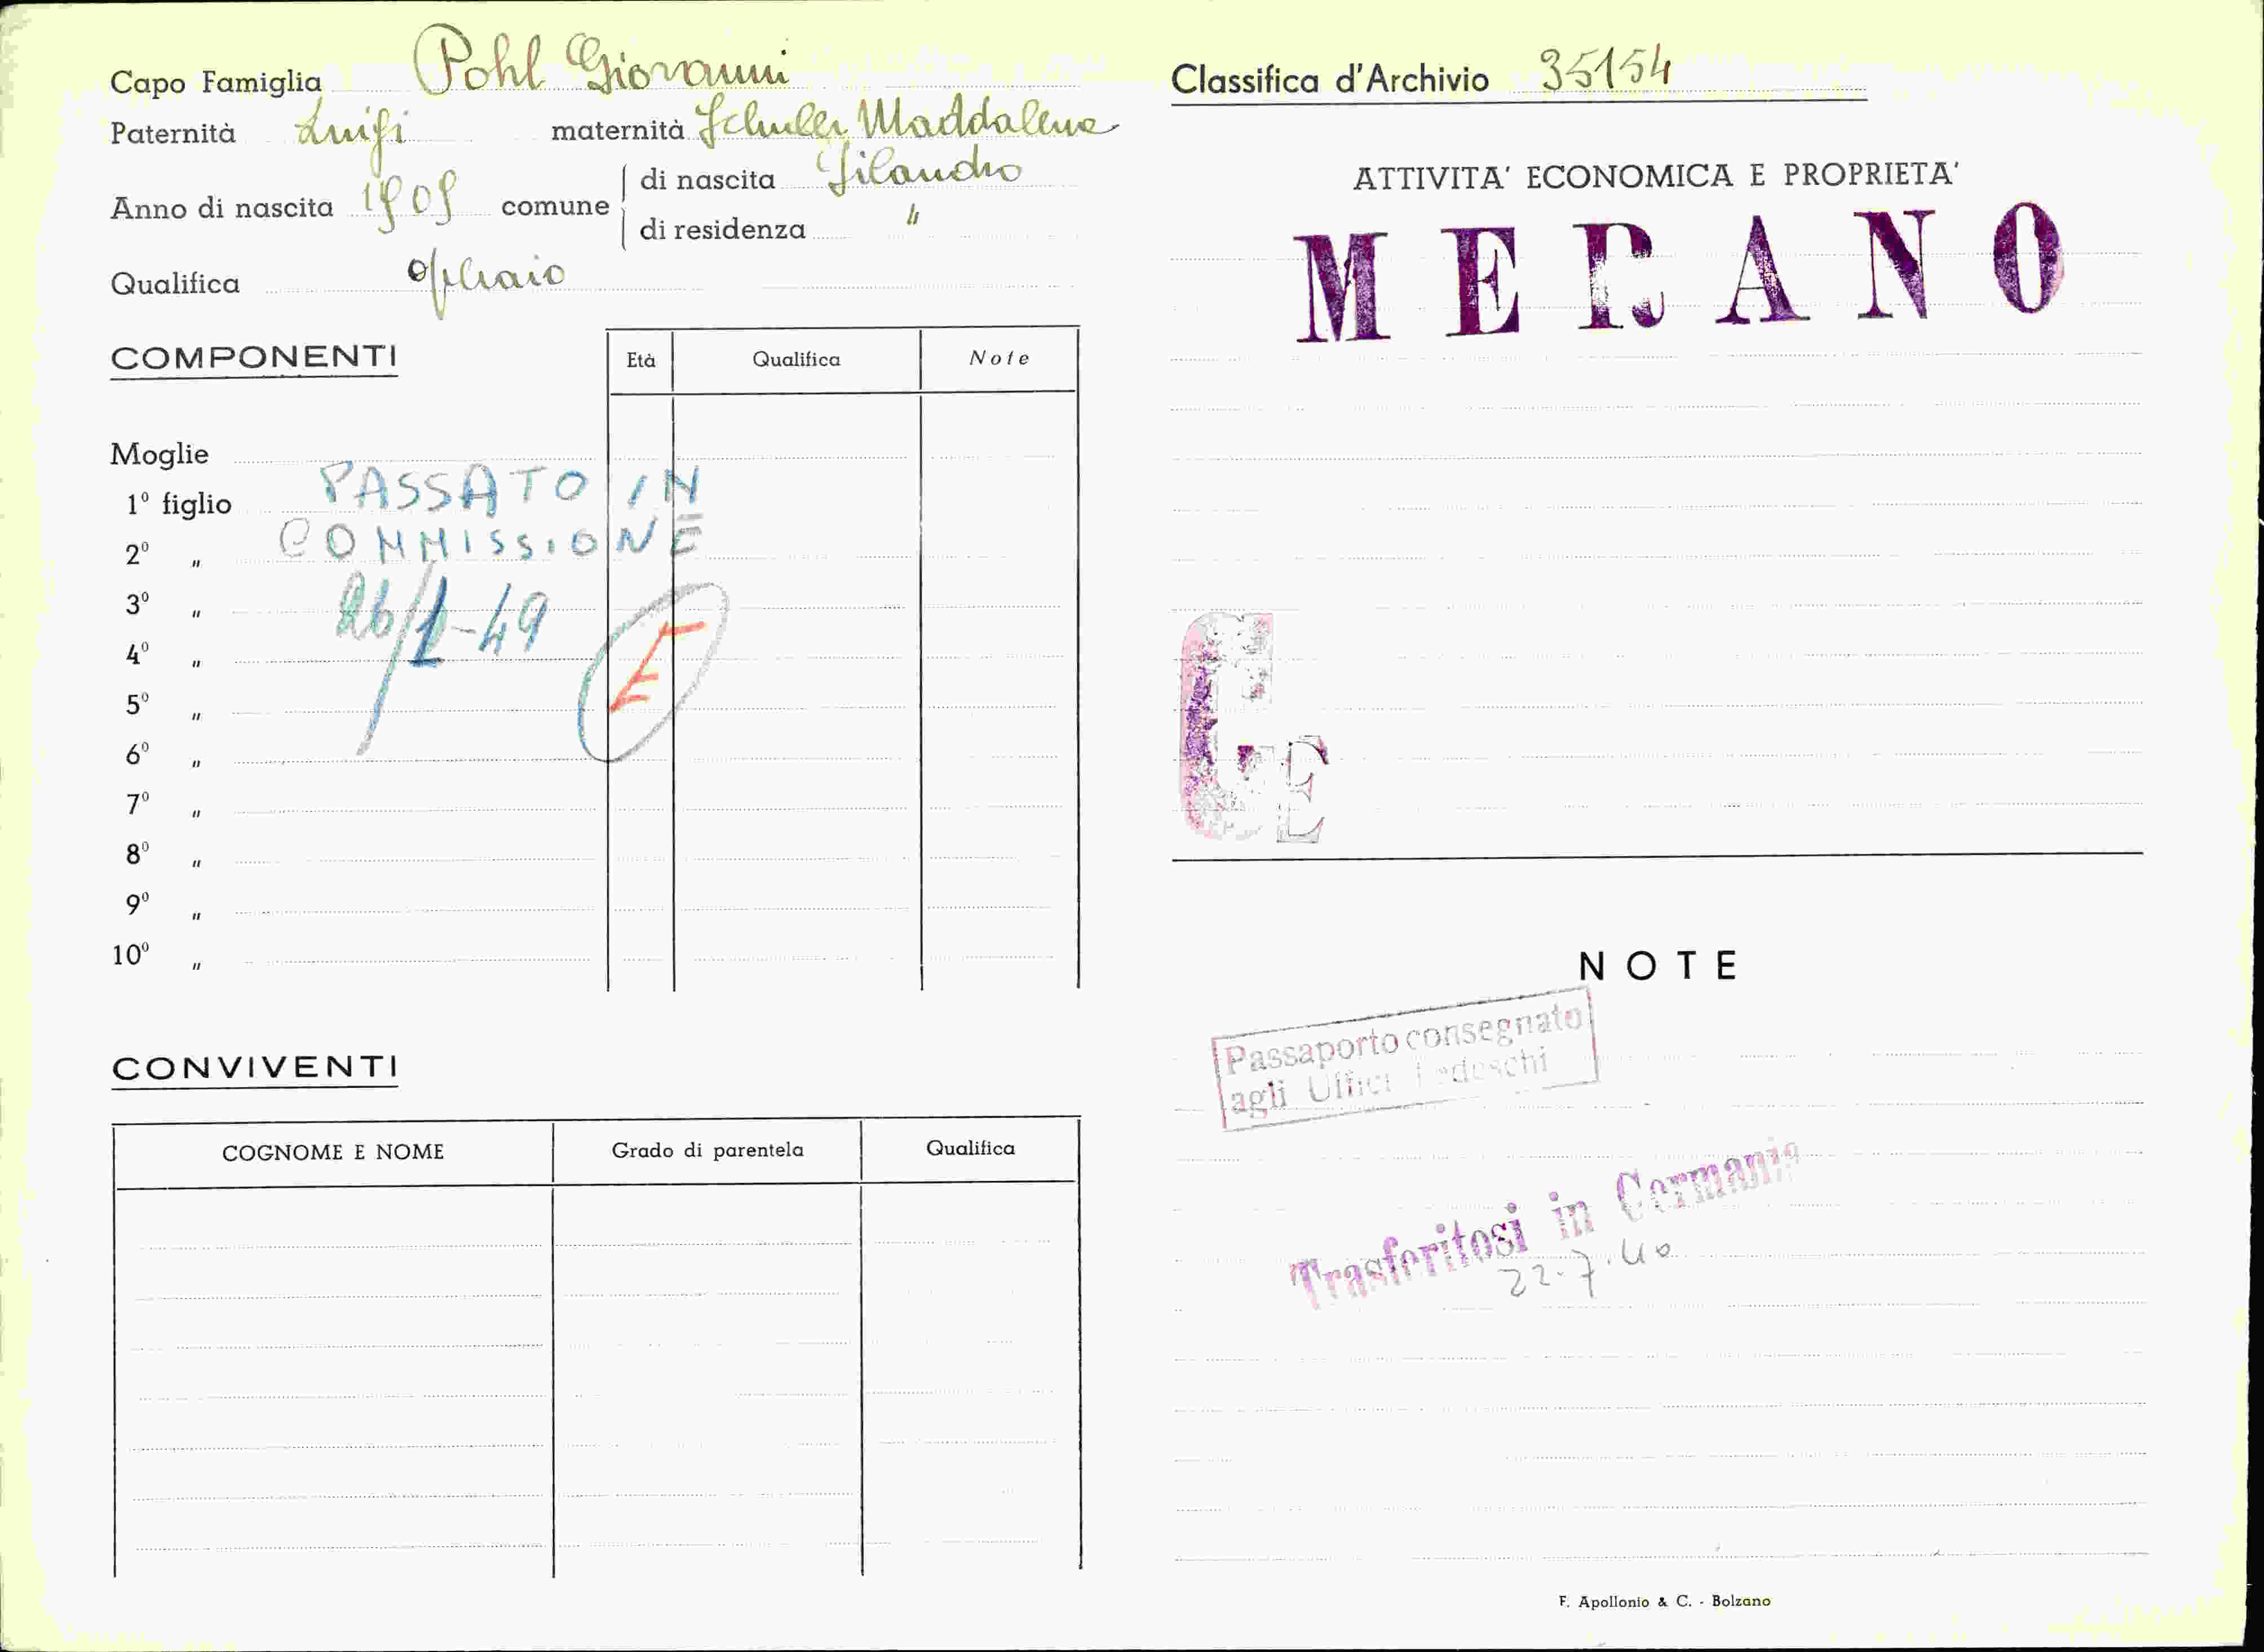 Capo Famiglia Pohl Giovanni
Paternità Luigi maternità Schuler Maddalena
Anno di nascita 1909 comune di nascita Silandro
di residenza "
Qualifica operaio
COMPONENTI
Età Qualifica Note
Moglie
1º figlio
2º "
3º "
4º "
5º "
6º "
7º "
8º "
9º "
10º "
PASSATO IN
COMMISSIONE
26/1-49
E
CONVIVENTI
COGNOME E NOME Grado di parentela Qualifica
Classifica d'Archivio 35154
ATTIVITA' ECONOMICA E PROPRIETA'
MERANO
E
NOTE
Passaporto consegnato
agli Uffici Tedeschi
Trasferitosi in Germania
22.7.40
F. Apollonio & C. - Bolzano